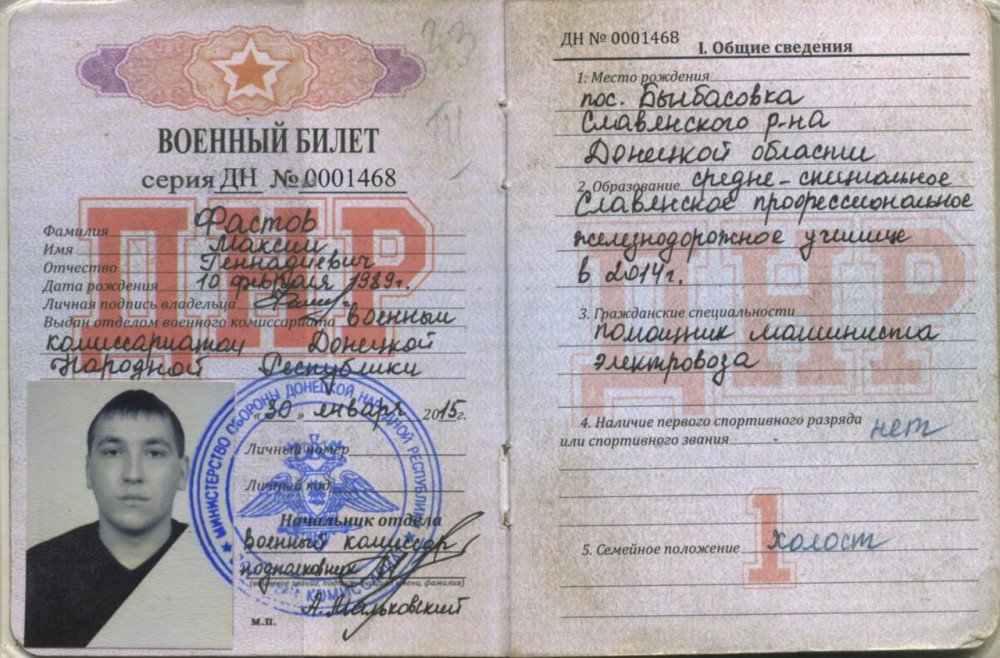 ВОЕННЫЙ БИЛЕТ
серия ДН № 0001468
ДНР
Фамилия Фастов
Имя Максим
Отчество Геннадиевич
Дата рождения 10 февраля 1989г.
Личная подпись владельца
Выдан отделом военного комиссариата военным
комиссариатом Донецкой
Народной Республики
«30» января 2015г.
МИНИСТЕРСТВО ОБОРОНЫ ДОНЕЦКОЙ НАРОДНОЙ РЕСПУБЛИКИ
Личный номер
Личный код
Начальник отдела
военный комиссар
подполковник
(воинское звание, подпись, инициал имени, фамилия)
А. Мальковский
м.п.
ДН № 0001468
I. Общие сведения
1. Место рождения
пос. Былбасовка
Славянского р-на
Донецкой области
2. Образование средне-специальное
Славянское профессиональное
железнодорожное училище
в 2014г.
3. Гражданские специальности
помощник машиниста
электровоза
ДНР
4. Наличие первого спортивного разряда
или спортивного звания нет
5. Семейное положение холост
1